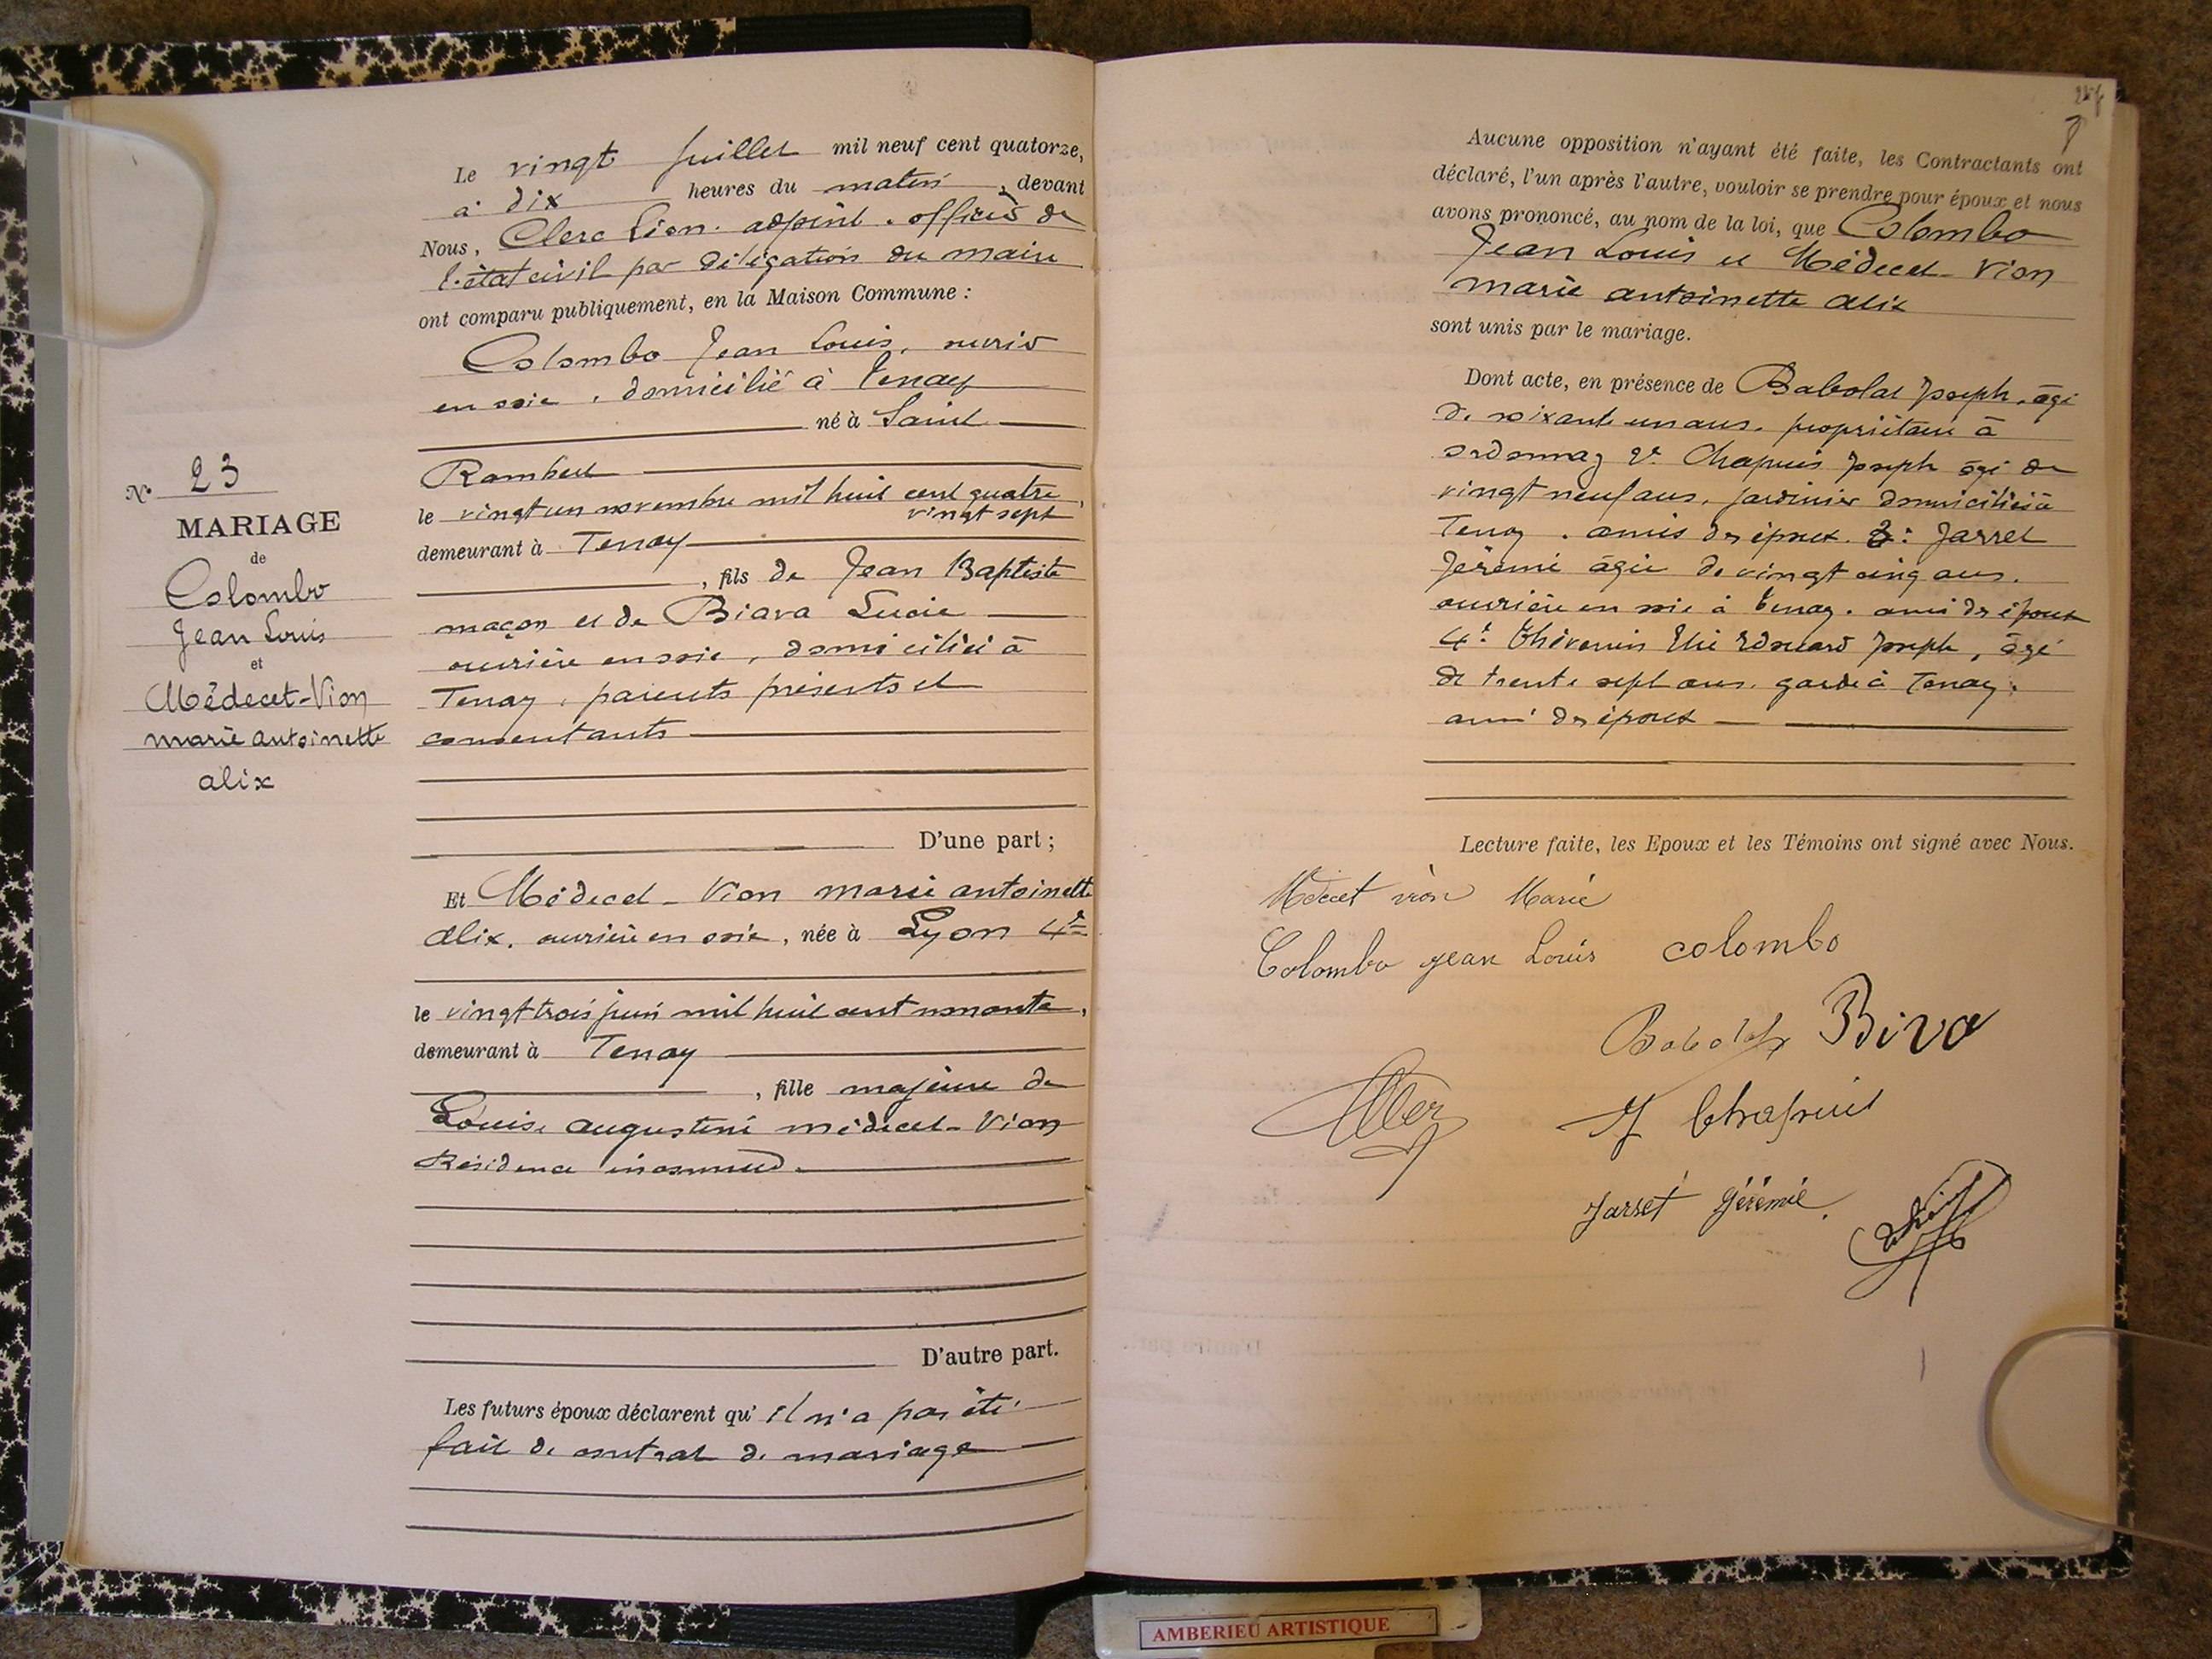 Le vingt Juillet mil neuf cent quatorze,
à dix heures du matin, devant
Nous, Clerc Léon. adjoint. officier de
l'état civil par délégation du maire
ont comparu publiquement, en la Maison Commune :
Colombo Jean Louis, ouvrier
en soie, domicilié à Tenay
né à Saint
Rambert
le vingt un novembre mil huit cent quatre
vingt sept,
demeurant à Tenay
, fils de Jean Baptiste
maçon et de Biava Lucie
ouvrière en soie, domiciliés à
Tenay, parents présents et
consentants
D'une part ;
Et Médecet-Vion marie antoinette
alix. ouvrière en soie, née à Lyon 4e
le vingt trois juin mil huit cent nonante,
demeurant à Tenay
, fille majeure de
Louise augustine médecet-Vion
Résidence inconnue.
D'autre part.
Les futurs époux déclarent qu'il n'a pas été
fait de contrat de mariage
N° 23
MARIAGE
de
Colombo
Jean Louis
et
Médecet-Vion
marie antoinette
alix
Aucune opposition n'ayant été faite, les Contractants ont
déclaré, l'un après l'autre, vouloir se prendre pour époux et nous
avons prononcé, au nom de la loi, que Colombo
Jean Louis et Médecet-Vion
marie antoinette alix
sont unis par le mariage.
Dont acte, en présence de Babolat Joseph, âgé
de soixante un ans. propriétaire à
ordonnaz 2° Chapuis Joseph âgé de
vingt neuf ans, jardinier domiciliés à
Tenay. amis des époux. 3: Jarret
Jérémie âgée de vingt cinq ans.
ouvrière en soie à Tenay. amie des époux
4: Thévenin Elie Edouard Joseph, âgé
de trente sept ans. garde à Tenay.
ami des époux
Lecture faite, les Epoux et les Témoins ont signé avec Nous.
Médecet vion Marie
Colombo jean Louis colombo
Babolat Biva
J Chapuis
Jarret Jérémie.
AMBERIEU ARTISTIQUE